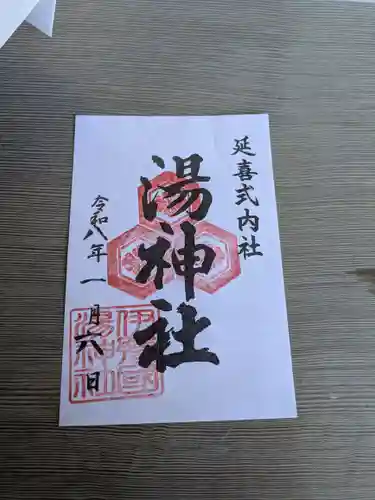 延喜式内社
湯神社
令和八年一月六日
伊豫国
湯神社